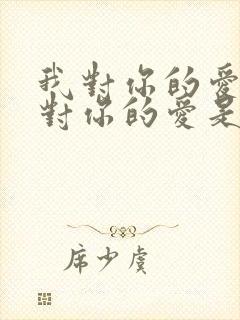 我對你的愛
對你的愛是
席少虞